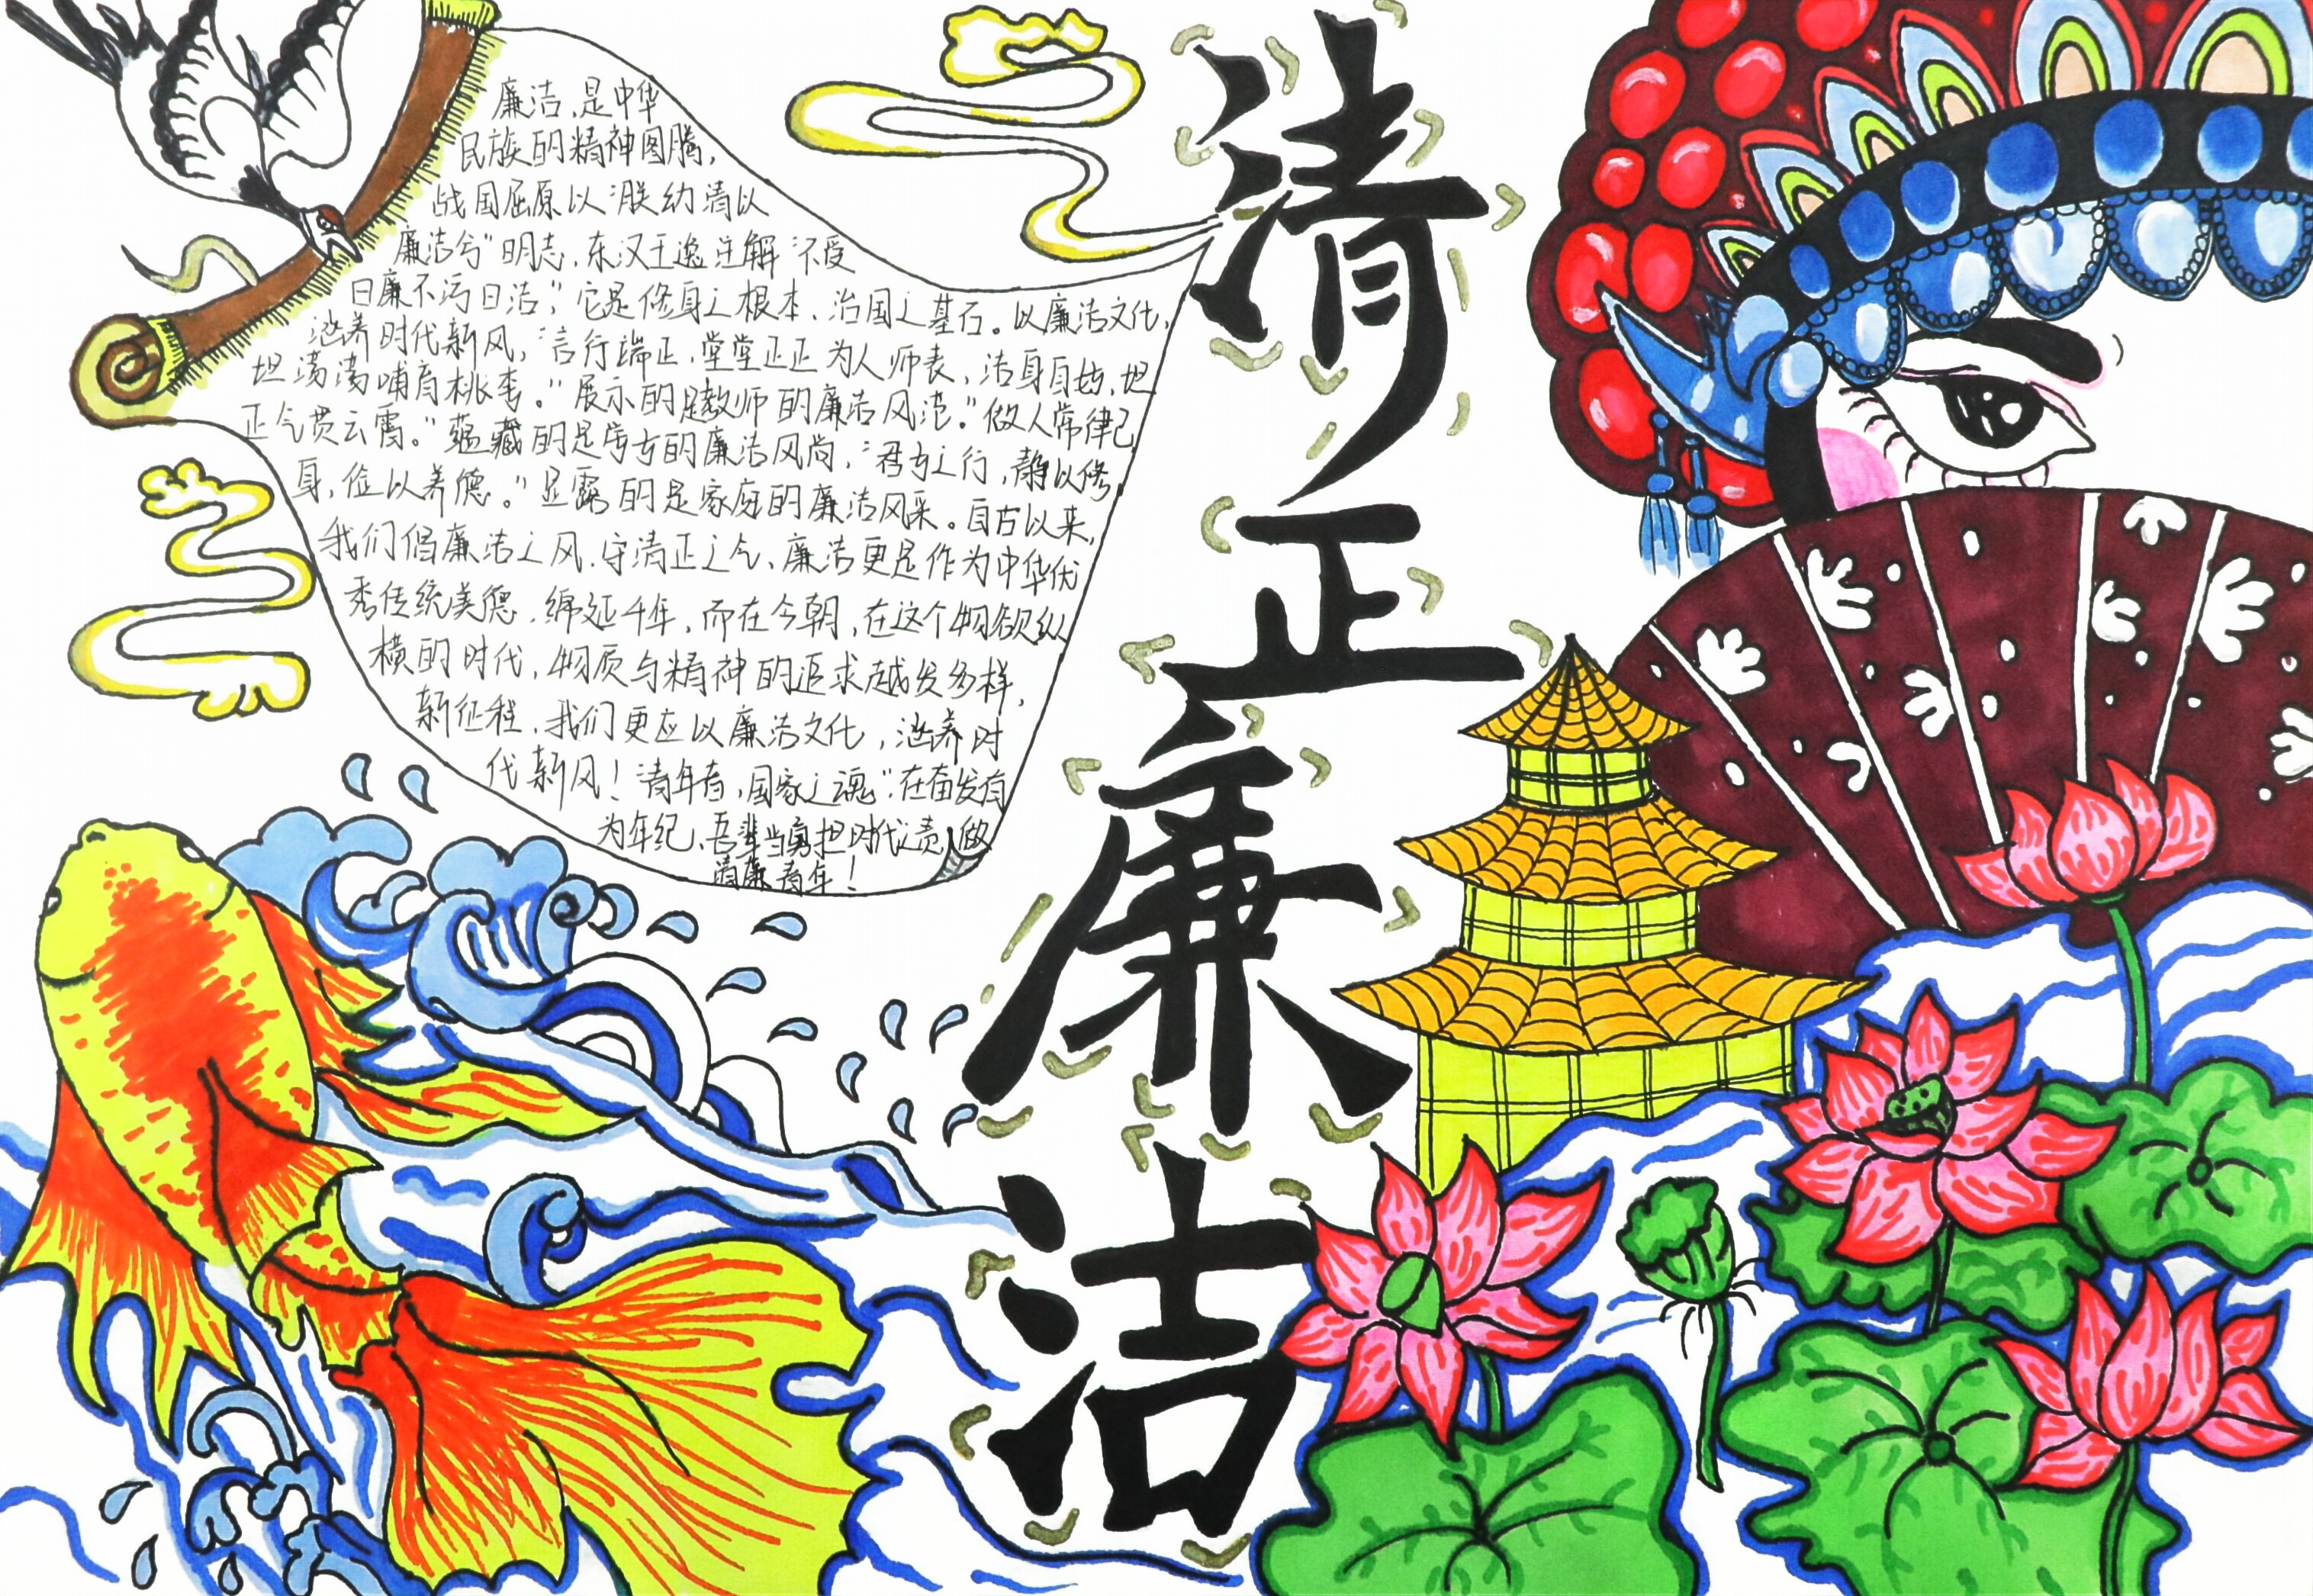 廉洁，是中华
民族的精神图腾，
战国屈原以“朕幼清以
廉洁兮”明志，东汉王逸注解“不受
曰廉不污曰洁”，它是修身之根本、治国之基石。以廉洁文化，
涵养时代新风，“言行端正，堂堂正正为人师表，洁身自好，坦
坦荡荡哺育桃李。”展示的是教师的廉洁风范。“做人常律己
正气贯云霄。”蕴藏的是学子的廉洁风尚，“君子之行，静以修
身，俭以养德。”显露的是家庭的廉洁风采。自古以来，
我们倡廉洁之风、守清正之气、廉洁更是作为中华优
秀传统美德，绵延千年，而在今朝，在这个物欲纵
横的时代，物质与精神的追求越发多样，
新征程，我们更应以廉洁文化，涵养时
代新风！“青年者，国家之魂”在奋发有
为年纪，吾辈当勇担时代之责，做
清廉青年！
清正廉洁